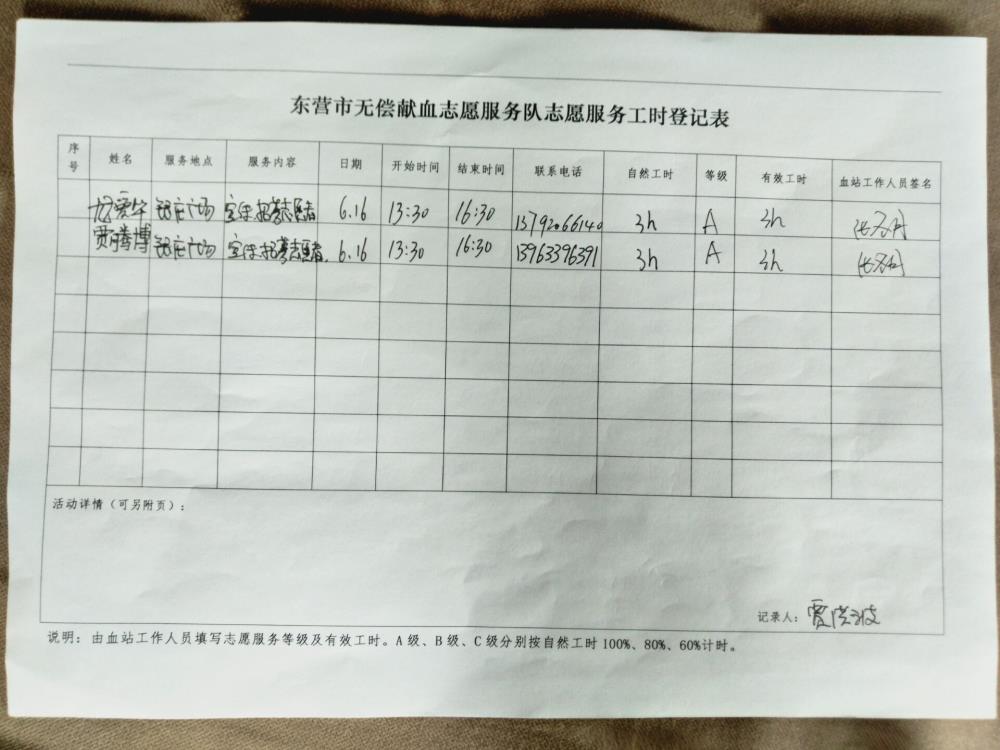 东营市无偿献血志愿服务队志愿服务工时登记表
序号 姓名 服务地点 服务内容 日期 开始时间 结束时间 联系电话 自然工时 等级 有效工时 血站工作人员签名
爱华 广场 宣传招募志愿者 6.16 13:30 16:30 13792066140 3h A 3h
贾腾博 广场 宣传招募志愿者 6.16 13:30 16:30 13963396371 3h A 3h
活动详情（可另附页）：
记录人：贾
说明：由血站工作人员填写志愿服务等级及有效工时。A级、B级、C级分别按自然工时100%、80%、60%计时。